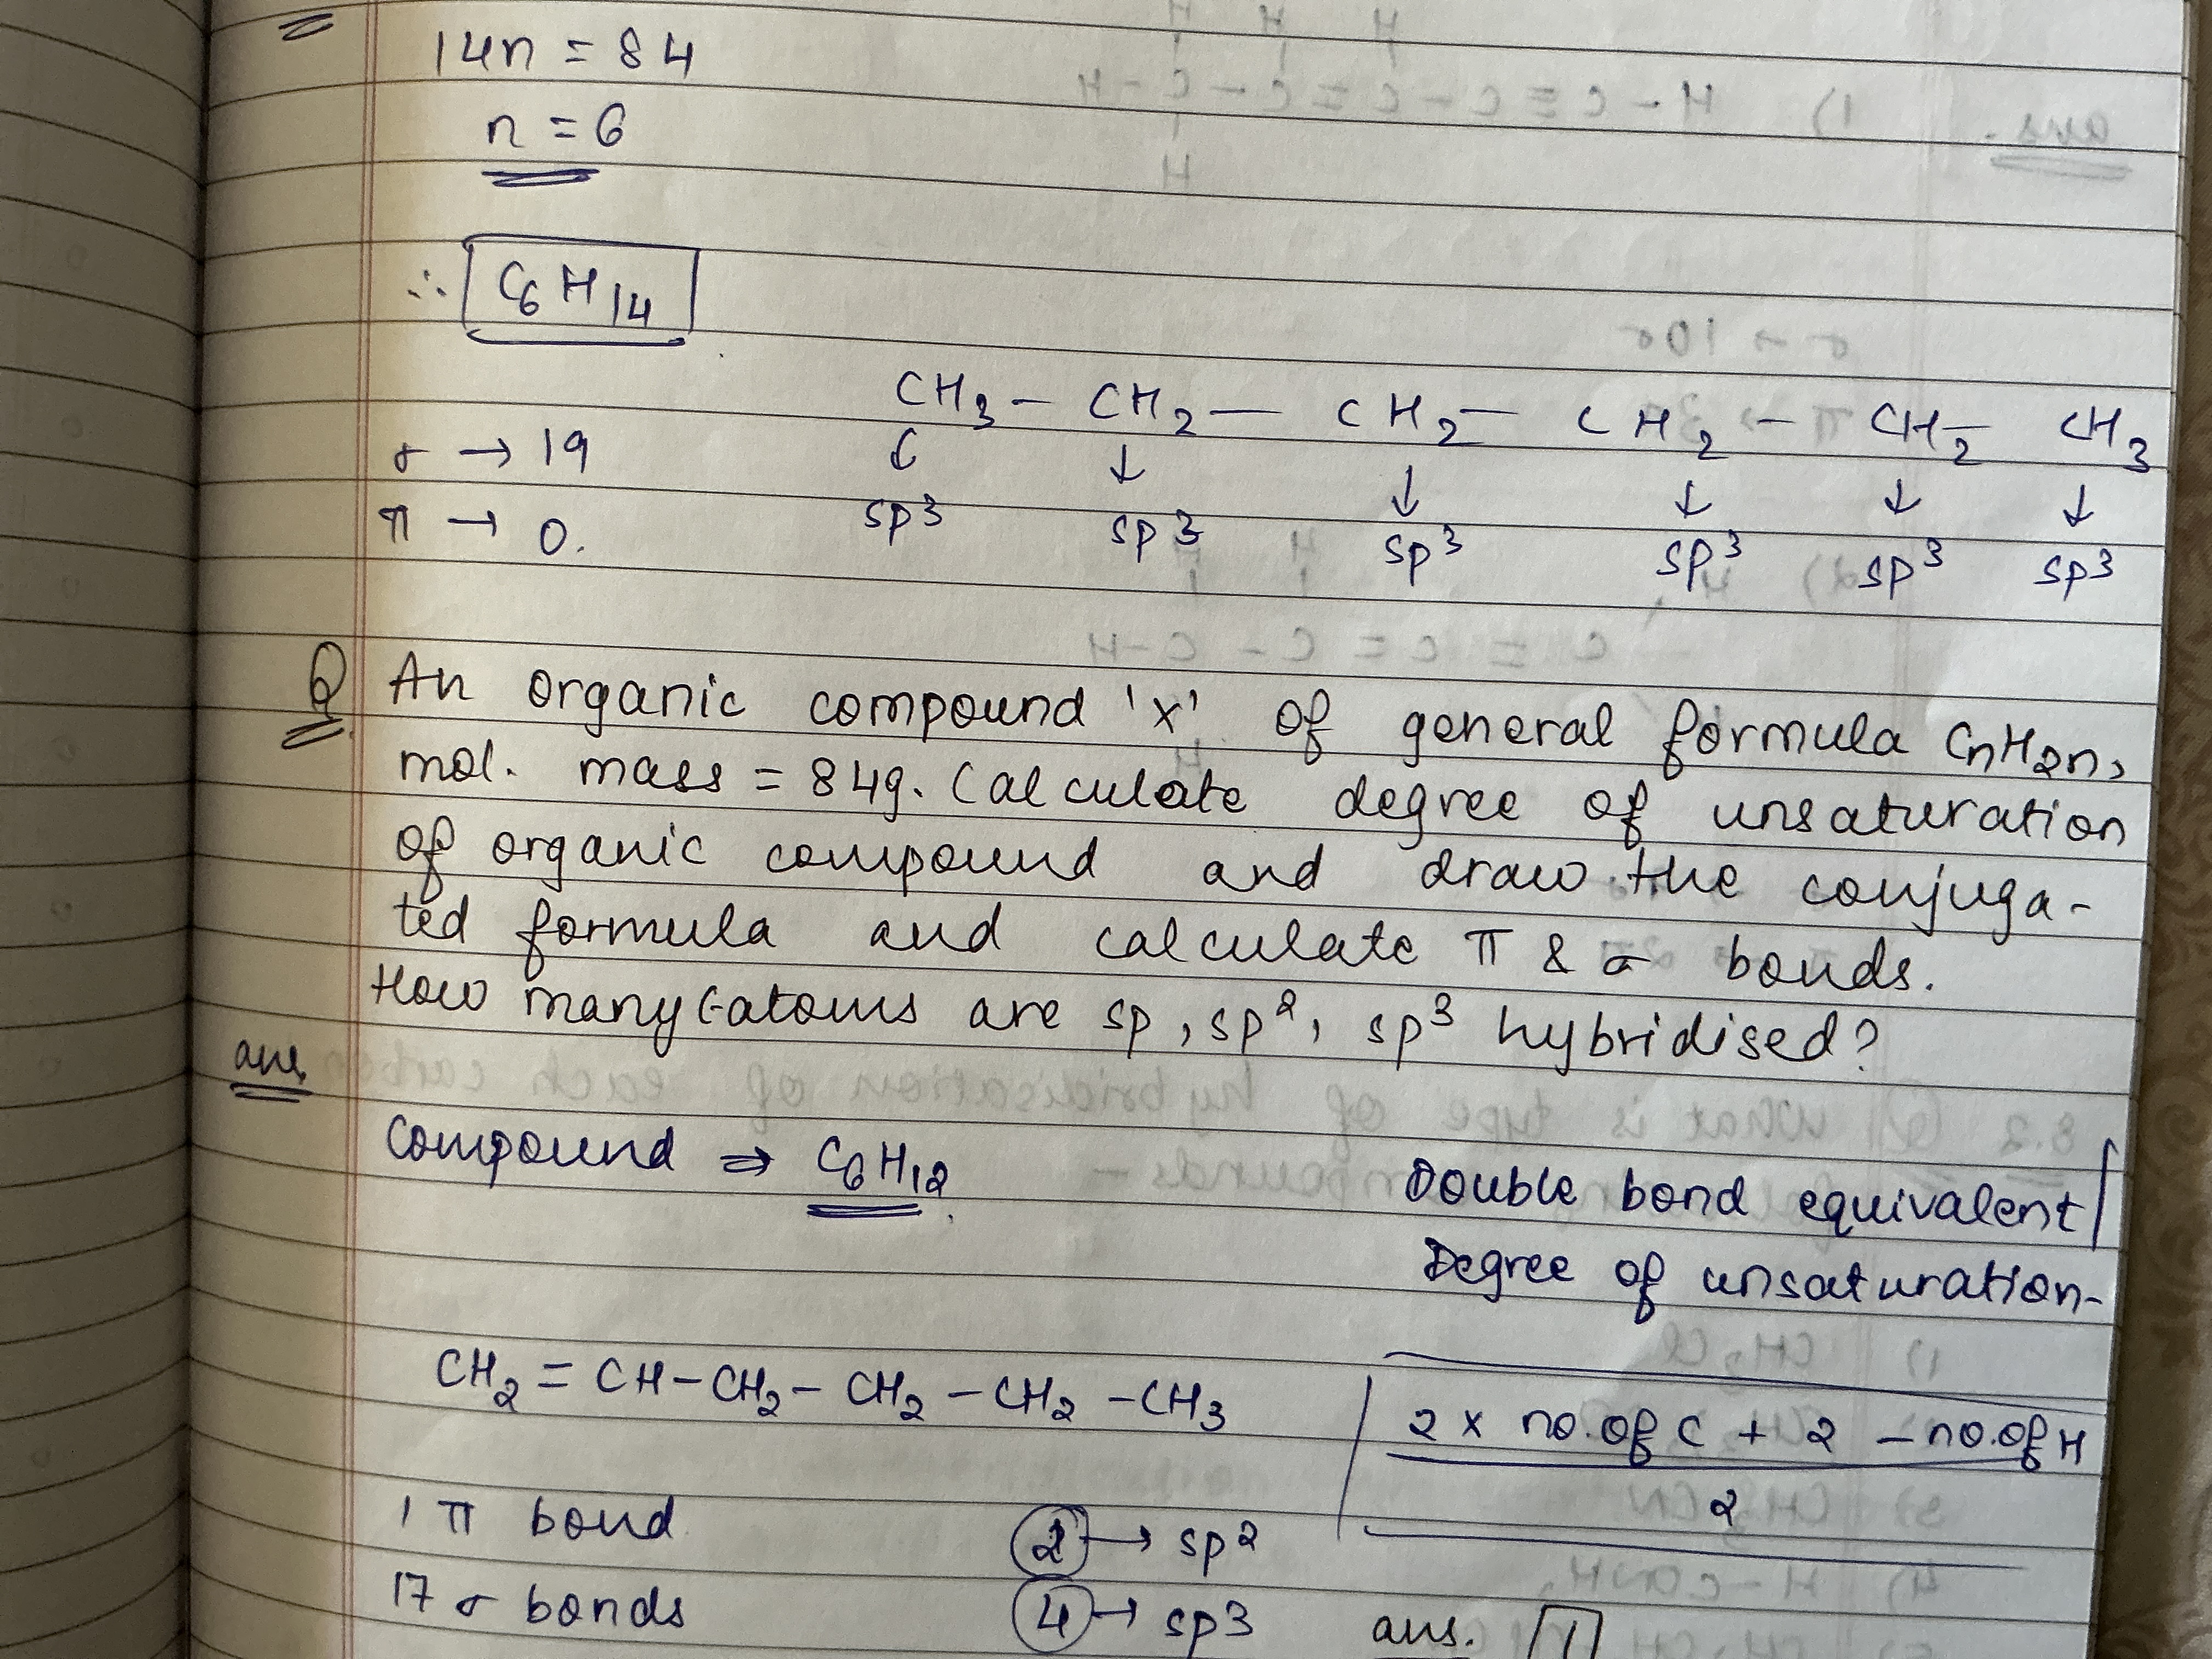 14n = 84
n = 6
∴ C₆H₁₄
CH₃ — CH₂ — CH₂ — CH₂ — CH₂ — CH₃
σ → 19 ↓ ↓ ↓ ↓ ↓ ↓
π → 0. sp³ sp³ sp³ sp³ sp³ sp³
Q An organic compound 'x' of general formula CₙH₂ₙ,
mol. mass = 84g. Calculate degree of unsaturation
of organic compound and draw the conjuga-
ted formula and calculate π & σ bonds.
How many C-atoms are sp, sp², sp³ hybridised?
ans.
Compound ⇒ C₆H₁₂.
Double bond equivalent/
Degree of unsaturation-
CH₂ = CH – CH₂ – CH₂ – CH₂ – CH₃
2 x no. of C + 2 – no. of H
2
1 π bond 2 → sp²
17 σ bonds 4 → sp3 ans. 1